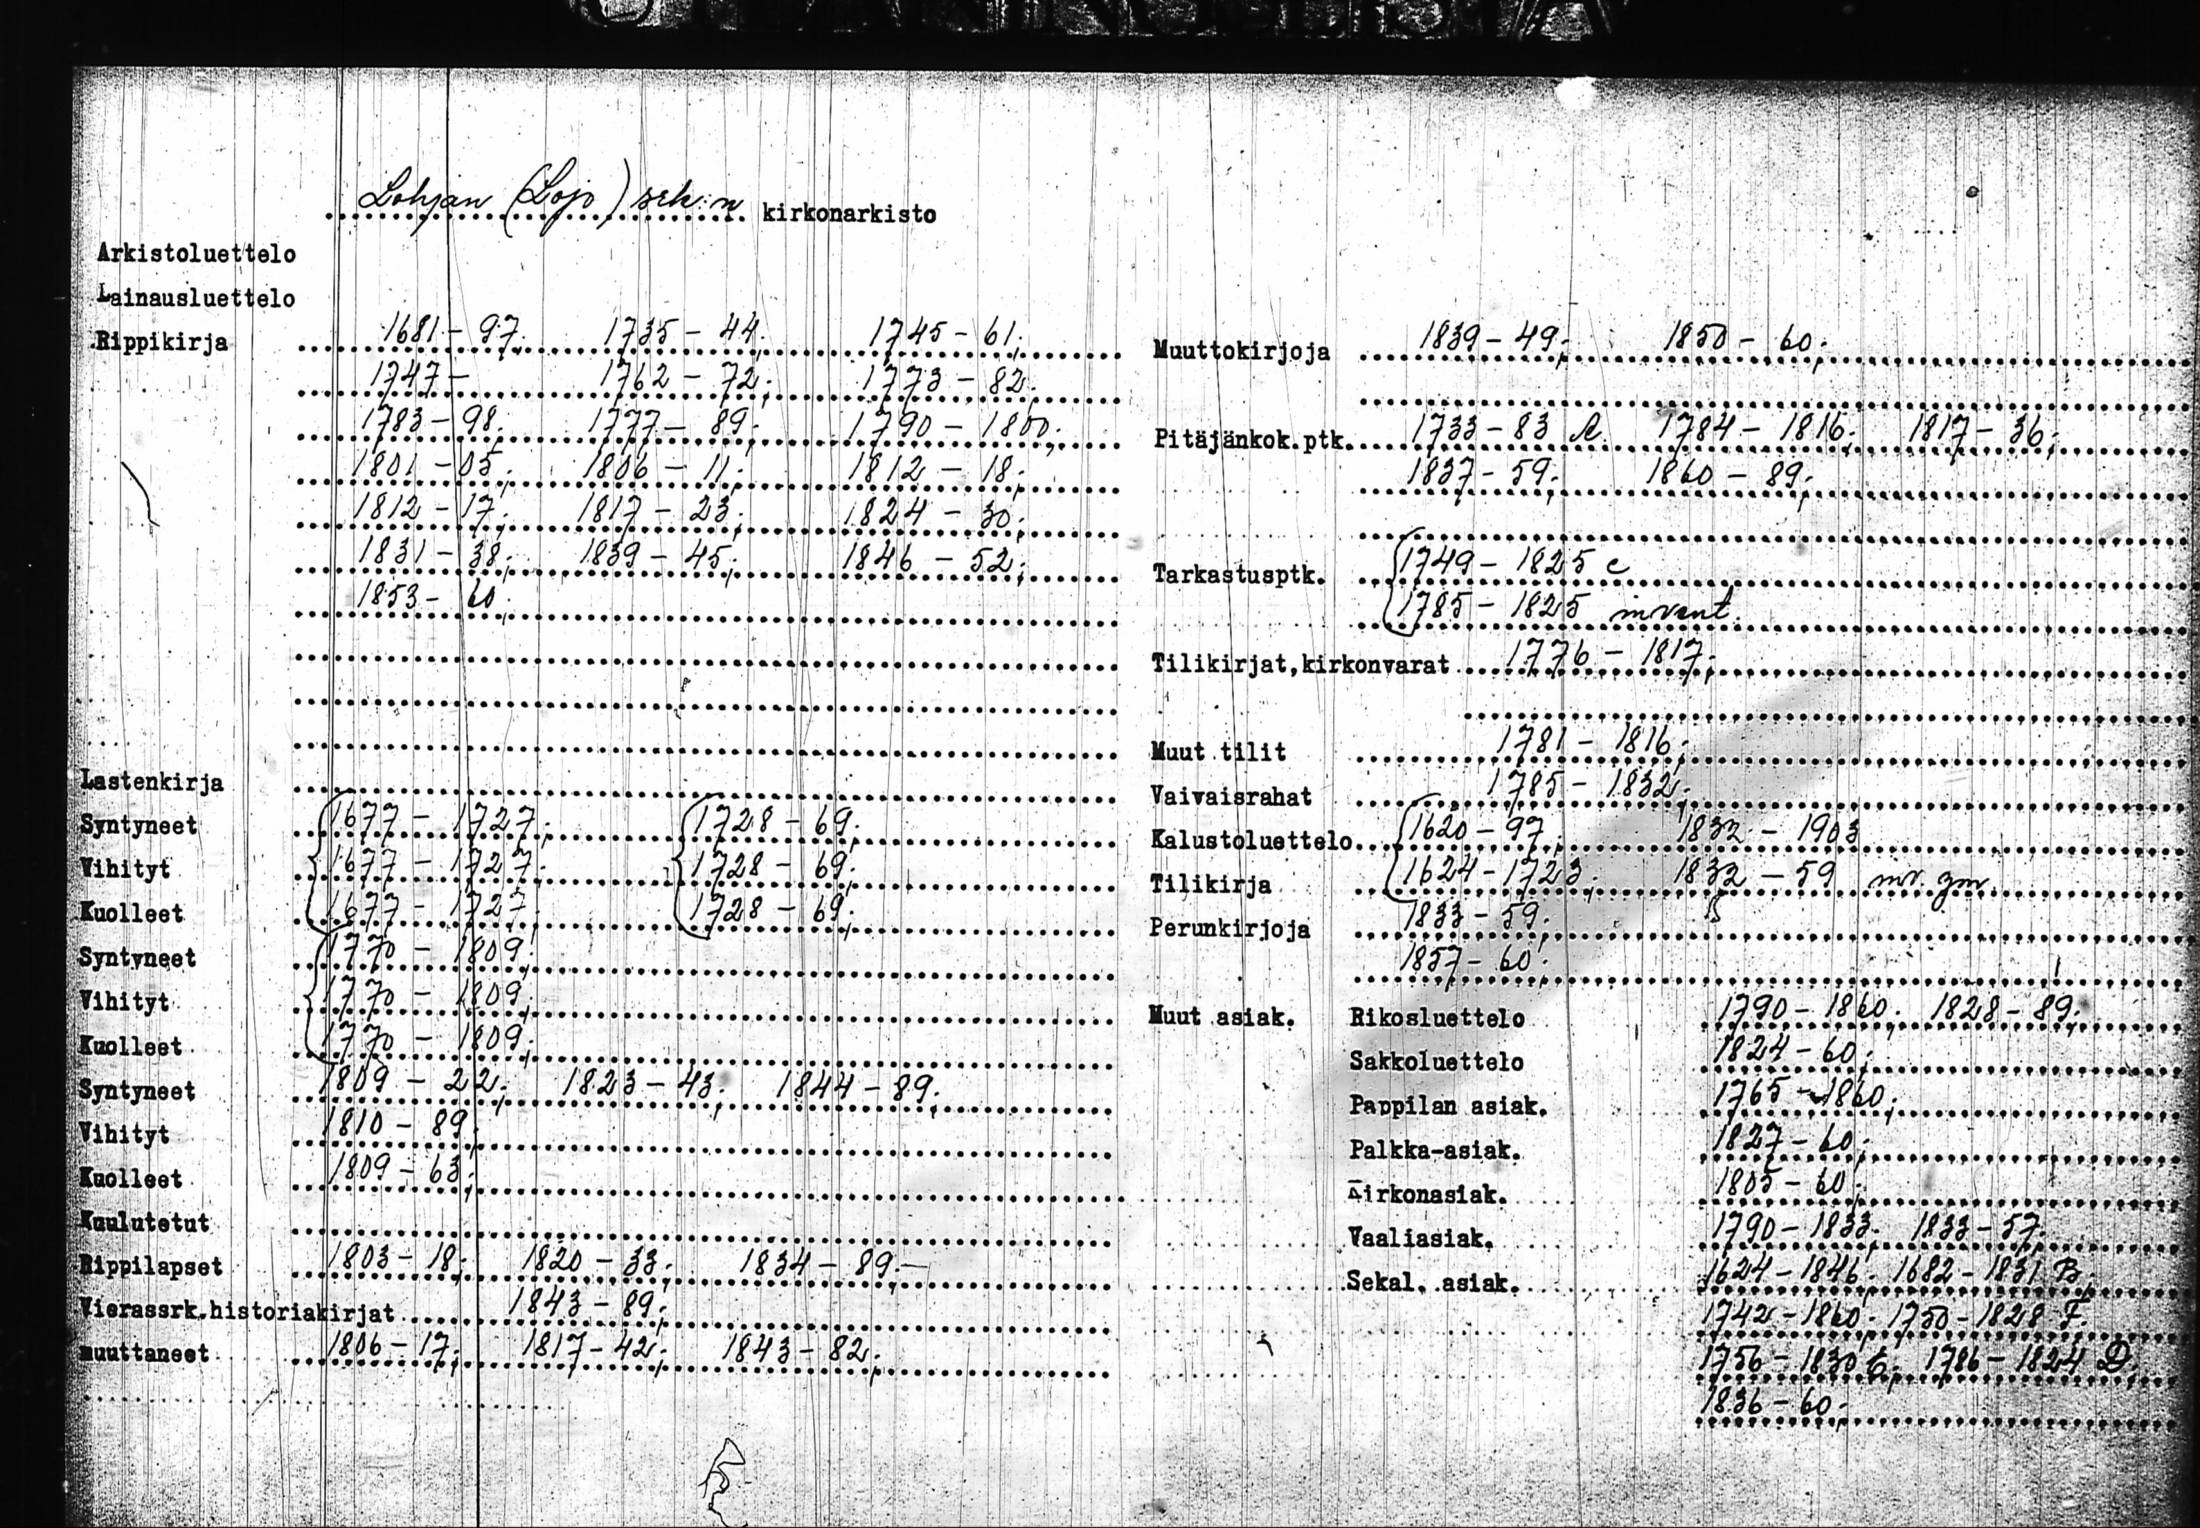 Lohjan (Lojo) srk:n kirkonarkisto
Arkistoluettelo
Lainausluettelo
Rippikirja 1681 - 97. 1735 - 44. 1745 - 61.
1747 - 1762 - 72. 1773 - 82.
1783 - 98. 1777 - 89. 1790 - 1800.
1801 - 05. 1806 - 11. 1812 - 18.
1812 - 17. 1817 - 23. 1824 - 30.
1831 - 38. 1839 - 45. 1846 - 52.
1853 - 60.
Lastenkirja
Syntyneet 1677 - 1727. 1728 - 69.
Vihityt 1677 - 1727. 1728 - 69.
Kuolleet 1677 - 1727. 1728 - 69.
Syntyneet 1770 - 1809.
Vihityt 1770 - 1809.
Kuolleet 1770 - 1809.
Syntyneet 1809 - 22. 1823 - 43. 1844 - 89.
Vihityt 1810 - 89.
Kuolleet 1809 - 63.
Kuulutetut
Rippilapset 1803 - 18. 1820 - 33. 1834 - 89. -
Vierassrk.historiakirjat 1843 - 89.
muuttaneet 1806 - 17. 1817 - 42. 1843 - 82.
Muuttokirjoja 1839 - 49. 1850 - 60.
Pitäjänkok.ptk. 1733 - 83 A. 1784 - 1816. 1817 - 36.
1837 - 59. 1860 - 89.
Tarkastusptk. 1749 - 1825 c
1785 - 1825 invent.
Tilikirjat, kirkonvarat 1776 - 1817.
Muut tilit 1781 - 1816.
Vaivaisrahat 1785 - 1832.
Kalustoluettelo 1620 - 97. 1832 - 1903
Tilikirja 1624 - 1723. 1832 - 59
Perunkirjoja 1833 - 59.
1857 - 60.
Muut asiak. Rikosluettelo 1790 - 1860. 1828 - 89.
Sakkoluettelo 1824 - 60.
Pappilan asiak. 1765 - 1860.
Palkka-asiak. 1827 - 60.
Kirkonasiak. 1805 - 60.
Vaaliasiak. 1790 - 1833. 1833 - 57.
Sekal. asiak. 1624 - 1846. 1682 - 1831 B.
1742 - 1860. 1750 - 1828 F.
1756 - 1830 E. 1786 - 1824 D.
1836 - 60.